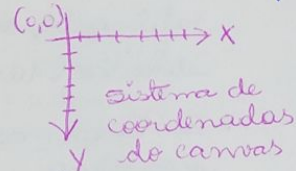 (0,0)
X
sistema de
coordenadas
do canvas
Y